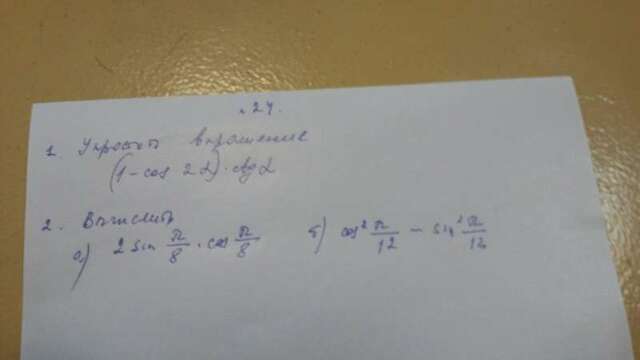 № 24.
1. Упростить выражение
(1 - cos 2α) · ctg α
2. Вычислить
а) 2 sin π/8 · cos π/8 б) cos² π/12 - sin² π/12